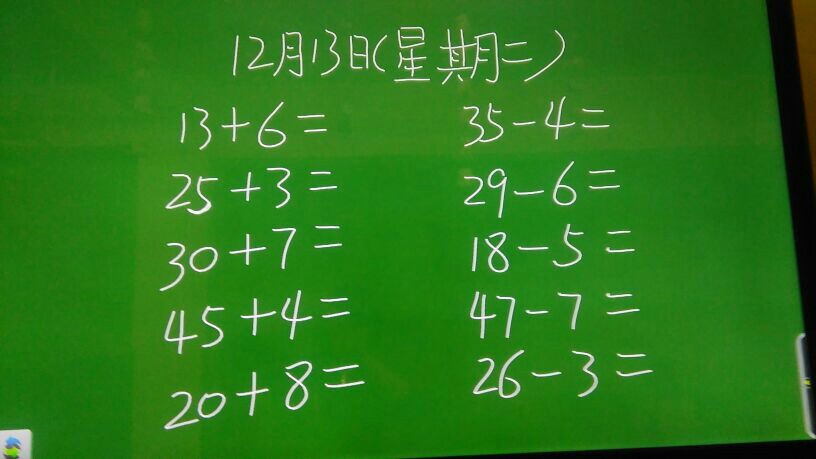 12月13日(星期二)
13+6= 35-4=
25+3= 29-6=
30+7= 18-5=
45+4= 47-7=
20+8= 26-3=